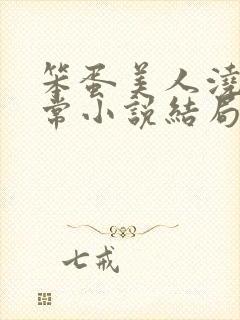 笨蛋美人澆
常小說結局
七戒